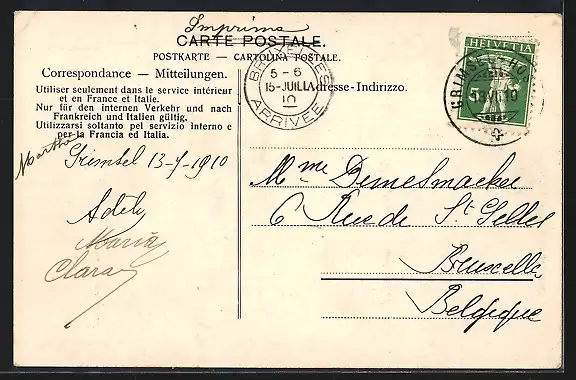 Imprimé
CARTE POSTALE.
POSTKARTE — CARTOLINA POSTALE.
Correspondance — Mitteilungen.
Adresse-Indirizzo.
Utiliser seulement dans le service intérieur
et en France et Italie.
Nur für den internen Verkehr und nach
Frankreich und Italien gültig.
Utilizzarsi soltanto pel servizio interno e
per la Francia ed Italia.
BRUXELLES
5-6
15-JUIL
10
ARRIVEE
HELVETIA
5
GRIMSEL-HO
13.VII.10
Martha
Grimsel 13-7-1910
Adèle
Maria
Clara
Mme Demelmaeker
6 Rue de St Gilles
Bruxelles
Belgique